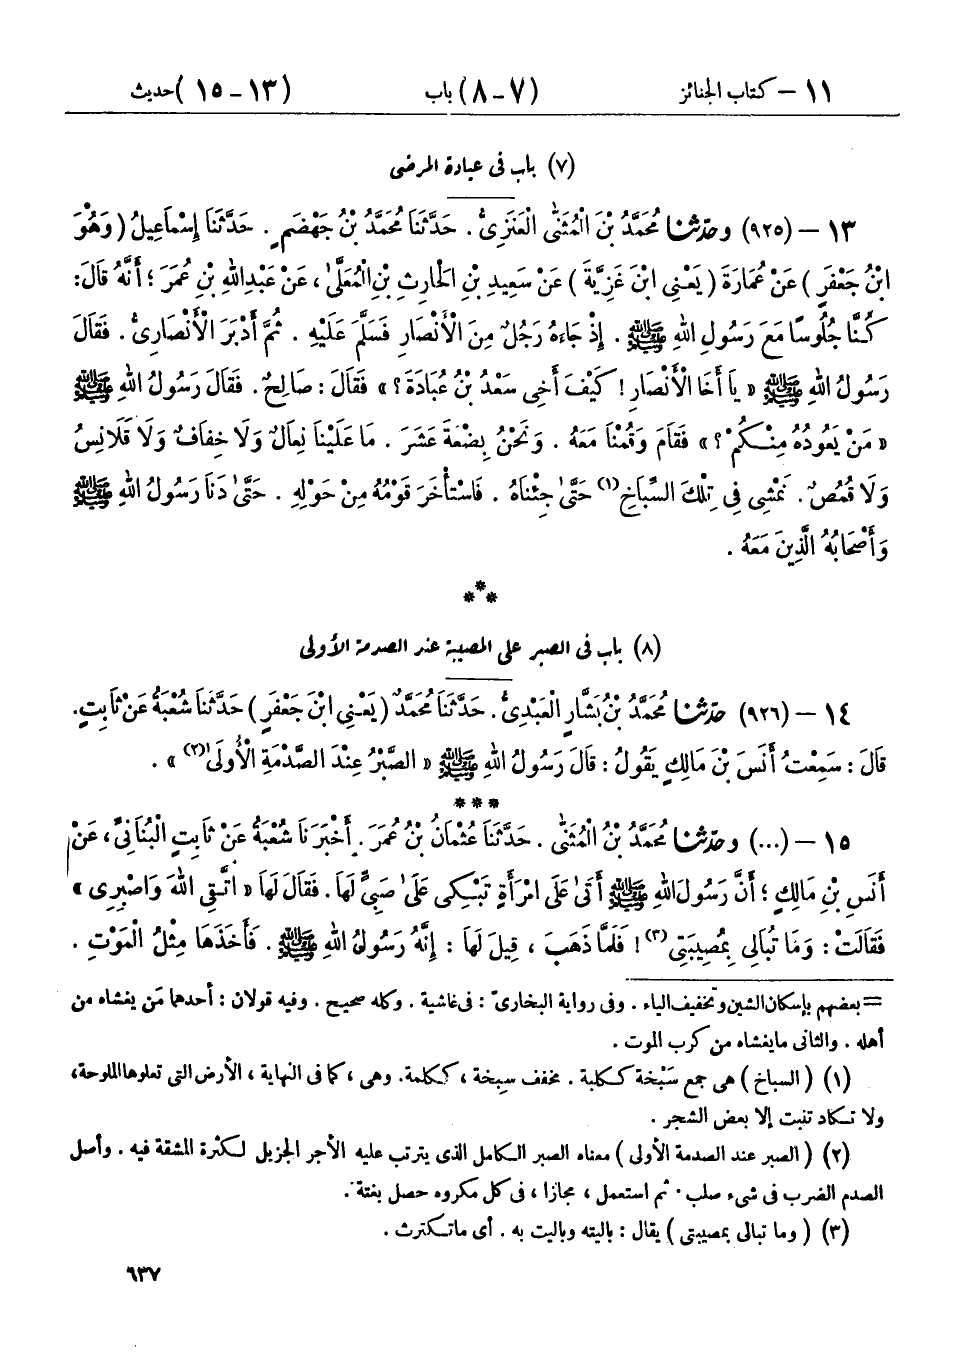 ١١ – كتاب الجنائز (٧ – ٨) باب (١٣ – ١٥) حديث
(٧) باب فى عيادة المرضى
١٣ – (٩٢٥) وحدّثنا مُحَمَّدُ بْنَ الْمُثَنَّى الْعَنَزِىُّ. حَدَّثَنَا مُحَمَّدُ بْنُ جَهْضَمٍ. حَدَّثَنَا إِسْمَاعِيلُ (وَهُوَ
ابْنُ جَعْفَرٍ) عَنْ عُمَارَةَ (يَعْنِى ابْنَ غَزِيَّةَ) عَنْ سَعِيدِ بْنِ الْحَارِثِ بْنِ الْمُعَلَّىٰ، عَنْ عَبْدِ اللهِ بْنِ عُمَرَ؛ أَنَّهُ قَالَ:
كُنَّا جُلُوسًا مَعَ رَسُولِ اللهِ ﷺ. إِذْ جَاءَهُ رَجُلٌ مِنَ الْأَنْصَارِ فَسَلَّمَ عَلَيْهِ. ثُمَّ أَدْبَرَ الْأَنْصَارِىُّ. فَقَالَ
رَسُولُ اللهِ ﷺ «يَا أَخَا الْأَنْصَارِ! كَيْفَ أَخِى سَعْدُ بْنُ عُبَادَةَ؟» فَقَالَ: صَالِحٌ. فَقَالَ رَسُولُ اللهِ ﷺ
«مَنْ يَعُودُهُ مِنْكُمْ؟» فَقَامَ وَقُمْنَا مَعَهُ. وَنَحْنُ بِضْعَةَ عَشَرَ. مَا عَلَيْنَا نِعَالٌ وَلَا خِفَافٌ وَلَا قَلَانِسُ
وَلَا قُمُصٌ. نَمْشِى فِى تِلْكَ السِّبَاخِ(١) حَتَّىٰ جِئْنَاهُ. فَاسْتَأْخَرَ قَوْمُهُ مِنْ حَوْلِهِ. حَتَّىٰ دَنَا رَسُولُ اللهِ ﷺ
وَأَصْحَابُهُ الَّذِينَ مَعَهُ.
***
(٨) باب فى الصبر على المصيبة عند الصدمة الأولى
١٤ – (٩٢٦) حدّثنا مُحَمَّدُ بْنُ بَشَّارٍ الْعَبْدِىُّ. حَدَّثَنَا مُحَمَّدٌ (يَعْنِى ابْنَ جَعْفَرٍ) حَدَّثَنَا شُعْبَةُ عَنْ ثَابِتٍ.
قَالَ: سَمِعْتُ أَنَسَ بْنَ مَالِكٍ يَقُولُ: قَالَ رَسُولُ اللهِ ﷺ «الصَّبْرُ عِنْدَ الصَّدْمَةِ الْأُولَىٰ(٢)».
***
١٥ – (...) وحدّثنا مُحَمَّدُ بْنُ الْمُثَنَّى. حَدَّثَنَا عُثْمَانُ بْنُ عُمَرَ. أَخْبَرَنَا شُعْبَةُ عَنْ ثَابِتٍ الْبُنَانِىِّ، عَنْ
أَنَسِ بْنِ مَالِكٍ؛ أَنَّ رَسُولَ اللهِ ﷺ أَتَىٰ عَلَى امْرَأَةٍ تَبْكِى عَلَىٰ صَبِىٍّ لَهَا. فَقَالَ لَهَا «اتَّقِى اللهَ وَاصْبِرِى»
فَقَالَتْ: وَمَا تُبَالِى بِمُصِيبَتِى(٣)! فَلَمَّا ذَهَبَ، قِيلَ لَهَا: إِنَّهُ رَسُولُ اللهِ ﷺ. فَأَخَذَهَا مِثْلُ الْمَوْتِ.
= بعضهم بإسكان الشين وتخفيف الياء. وفى رواية البخارىّ: فى غاشية. وكله صحيح. وفيه قولان: أحدهما مَن يغشاه من
أهله. والثانى مايغشاه من كرب الموت.
(١) (السباخ) هى جمع سَبْخة ككلبة. مخفف سبِخة، ككلمة. وهى، كما فى النهاية، الأرض التى تعلوها الملوحة،
ولا تكاد تنبت إلا بعض الشجر.
(٢) (الصبر عند الصدمة الأولى) معناه الصبر الكامل الذى يترتب عليه الأجر الجزيل لكثرة المشقة فيه. وأصل
الصدم الضرب فى شىء صلب. ثم استعمل، مجازا، فى كل مكروه حصل بغتة.
(٣) (وما تبالى بمصيبتى) يقال: باليته وباليت به. أى ماتكترث.
٦٣٧